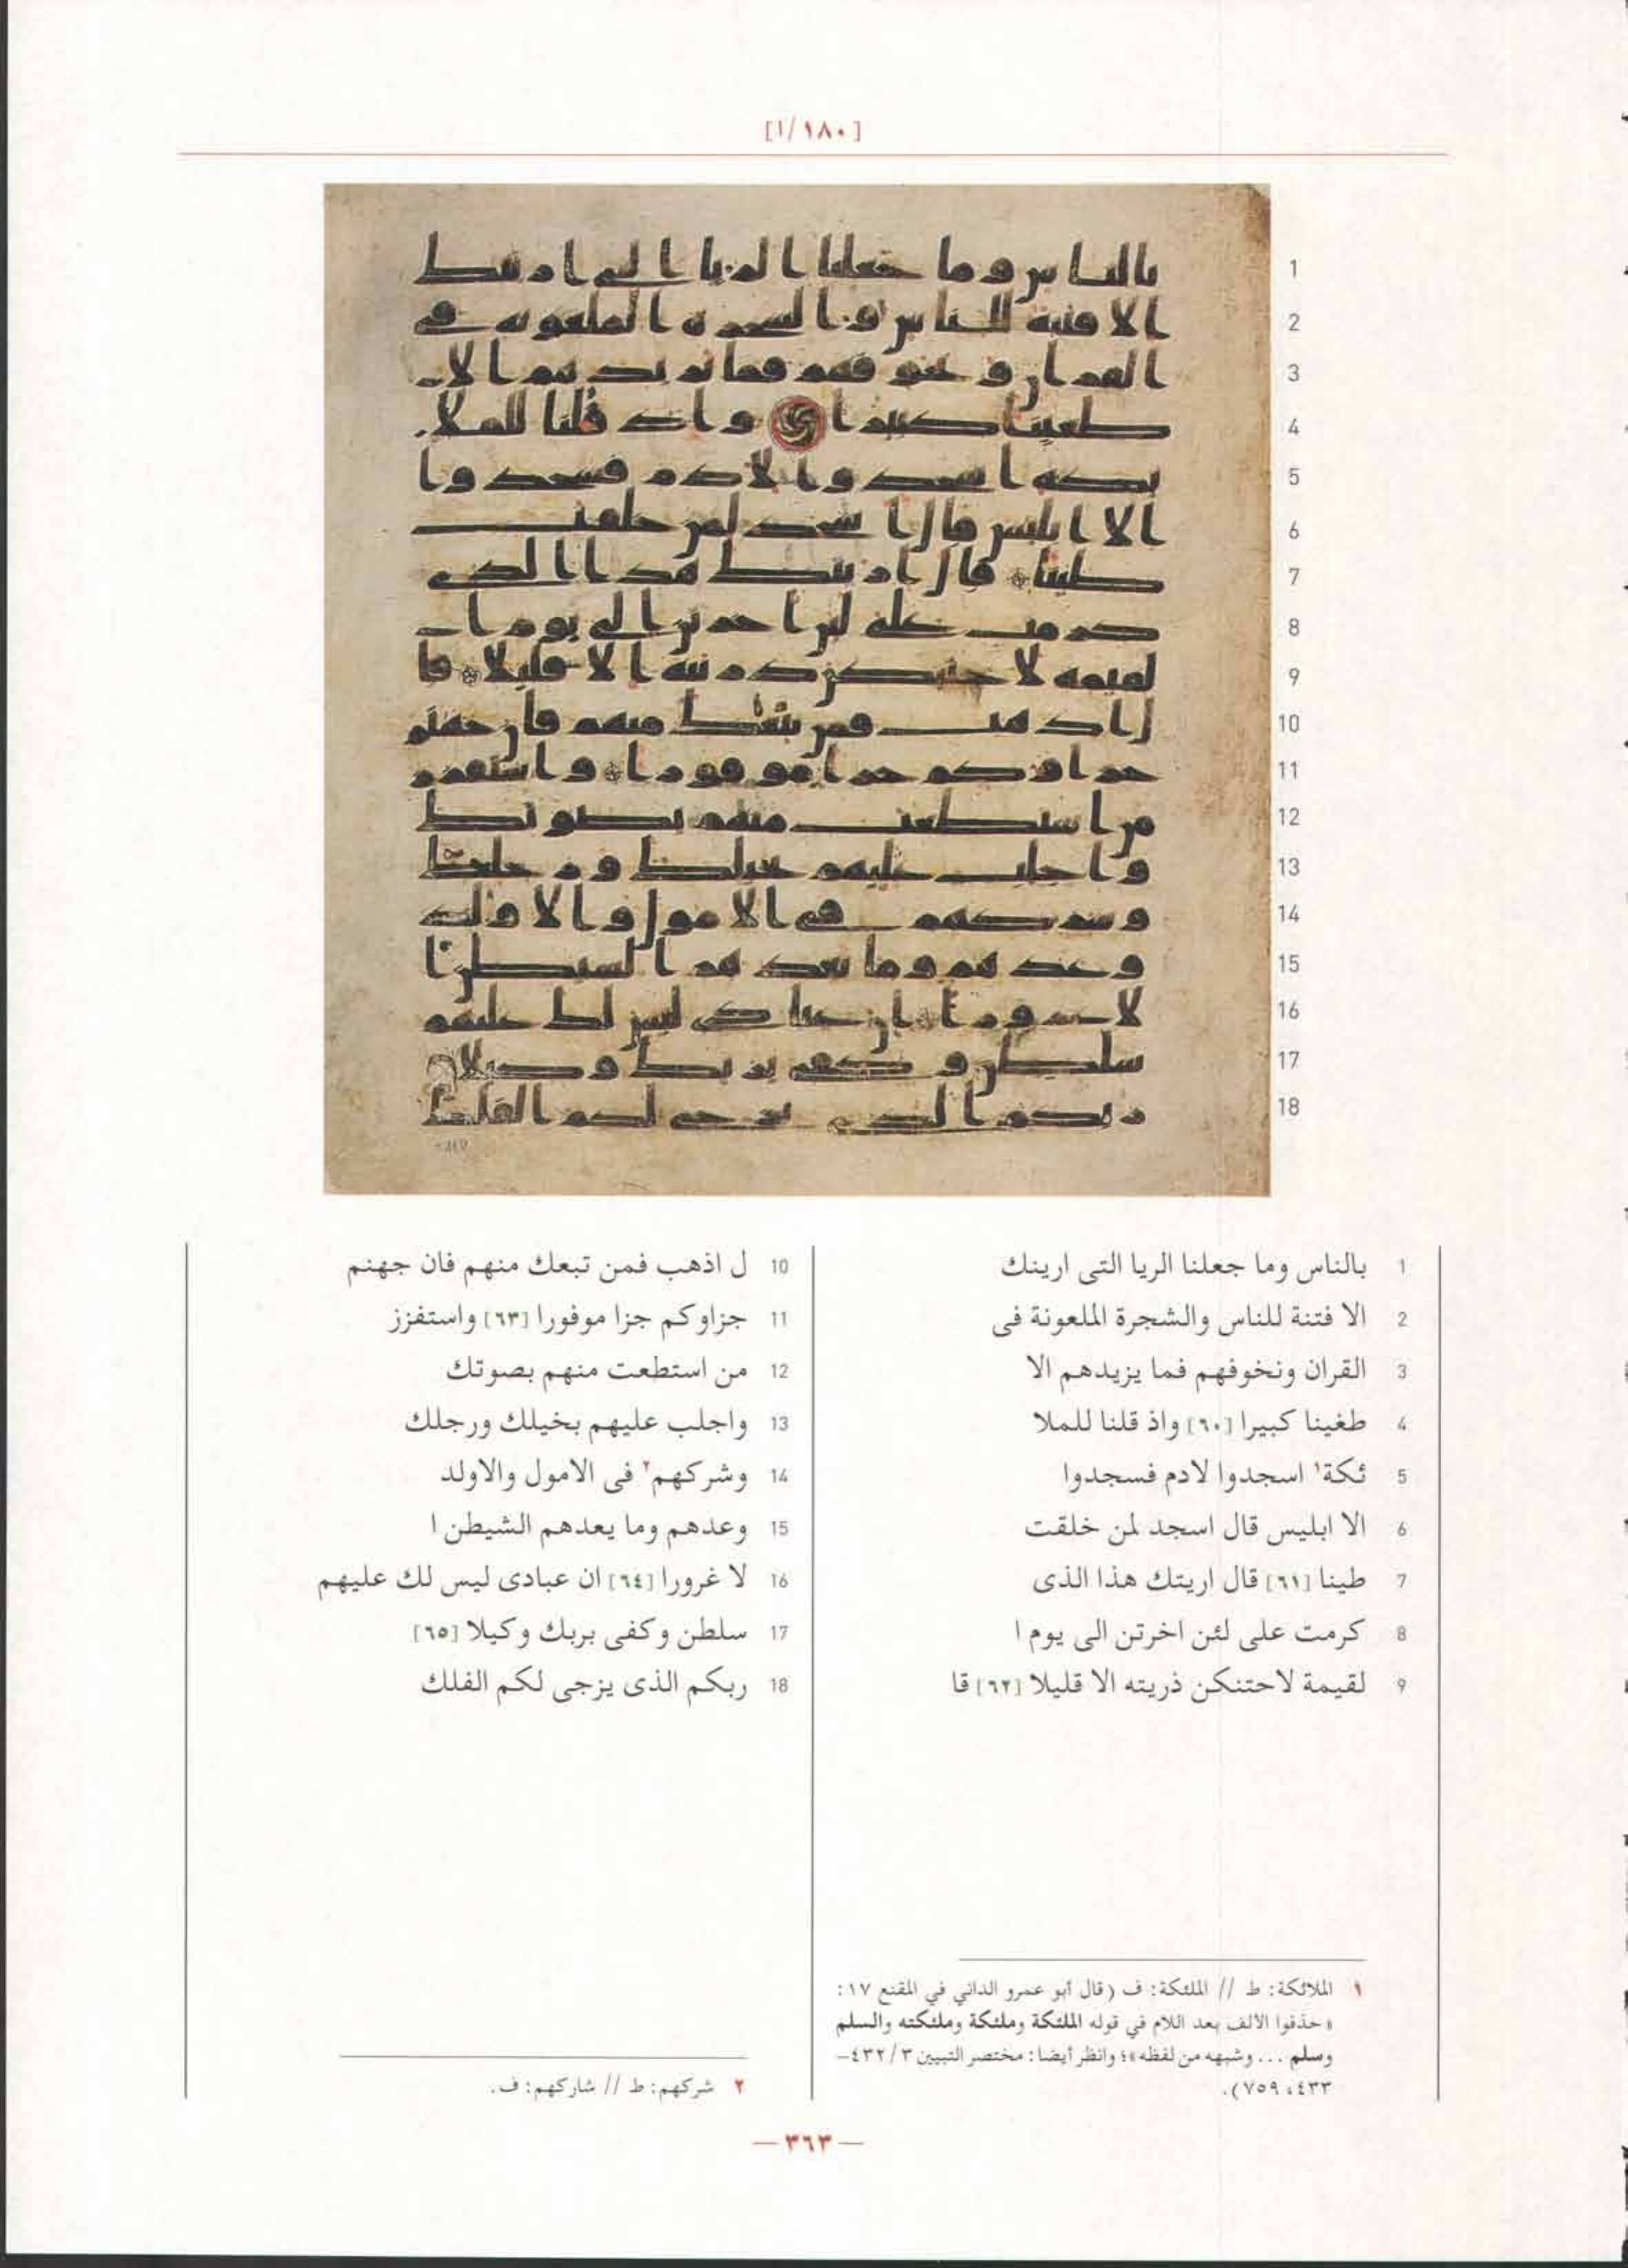 [١٨٠/ا]
1
2
3
4
5
6
7
8
9
10
11
12
13
14
15
16
17
18
1 بالناس وما جعلنا الريا التى ارينك
2 الا فتنة للناس والشجرة الملعونة فى
3 القران ونخوفهم فما يزيدهم الا
4 طغينا كبيرا [٦٠] واذ قلنا للملا
5 ئكة١ اسجدوا لادم فسجدوا
6 الا ابليس قال اسجد لمن خلقت
7 طينا [٦١] قال اريتك هذا الذى
8 كرمت على لئن اخرتن الى يوم ا
9 لقيمة لاحتنكن ذريته الا قليلا [٦٢] قا
10 ل اذهب فمن تبعك منهم فان جهنم
11 جزاوكم جزا موفورا [٦٣] واستفزز
12 من استطعت منهم بصوتك
13 واجلب عليهم بخيلك ورجلك
14 وشركهم٢ فى الامول والاولد
15 وعدهم وما يعدهم الشيطن ا
16 لا غرورا [٦٤] ان عبادى ليس لك عليهم
17 سلطن وكفى بربك وكيلا [٦٥]
18 ربكم الذى يزجى لكم الفلك
١ الملائكة: ط // الملئكة: ف (قال أبو عمرو الداني في المقنع ١٧:
«حذفوا الالف بعد اللام في قوله الملئكة وملئكة وملئكته والسلم
وسلم ... وشبهه من لفظه»؛ وانظر أيضا: مختصر التبيين ٣/ ٤٣٢–
٤٣٣، ٧٥٩).
٢ شركهم: ط // شاركهم: ف.
— ٣٦٣ —